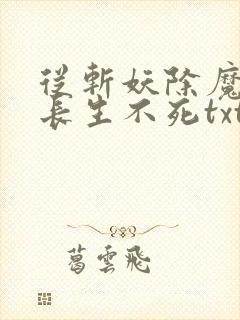 從斬妖除魔
長生不死txt
葛雲飛